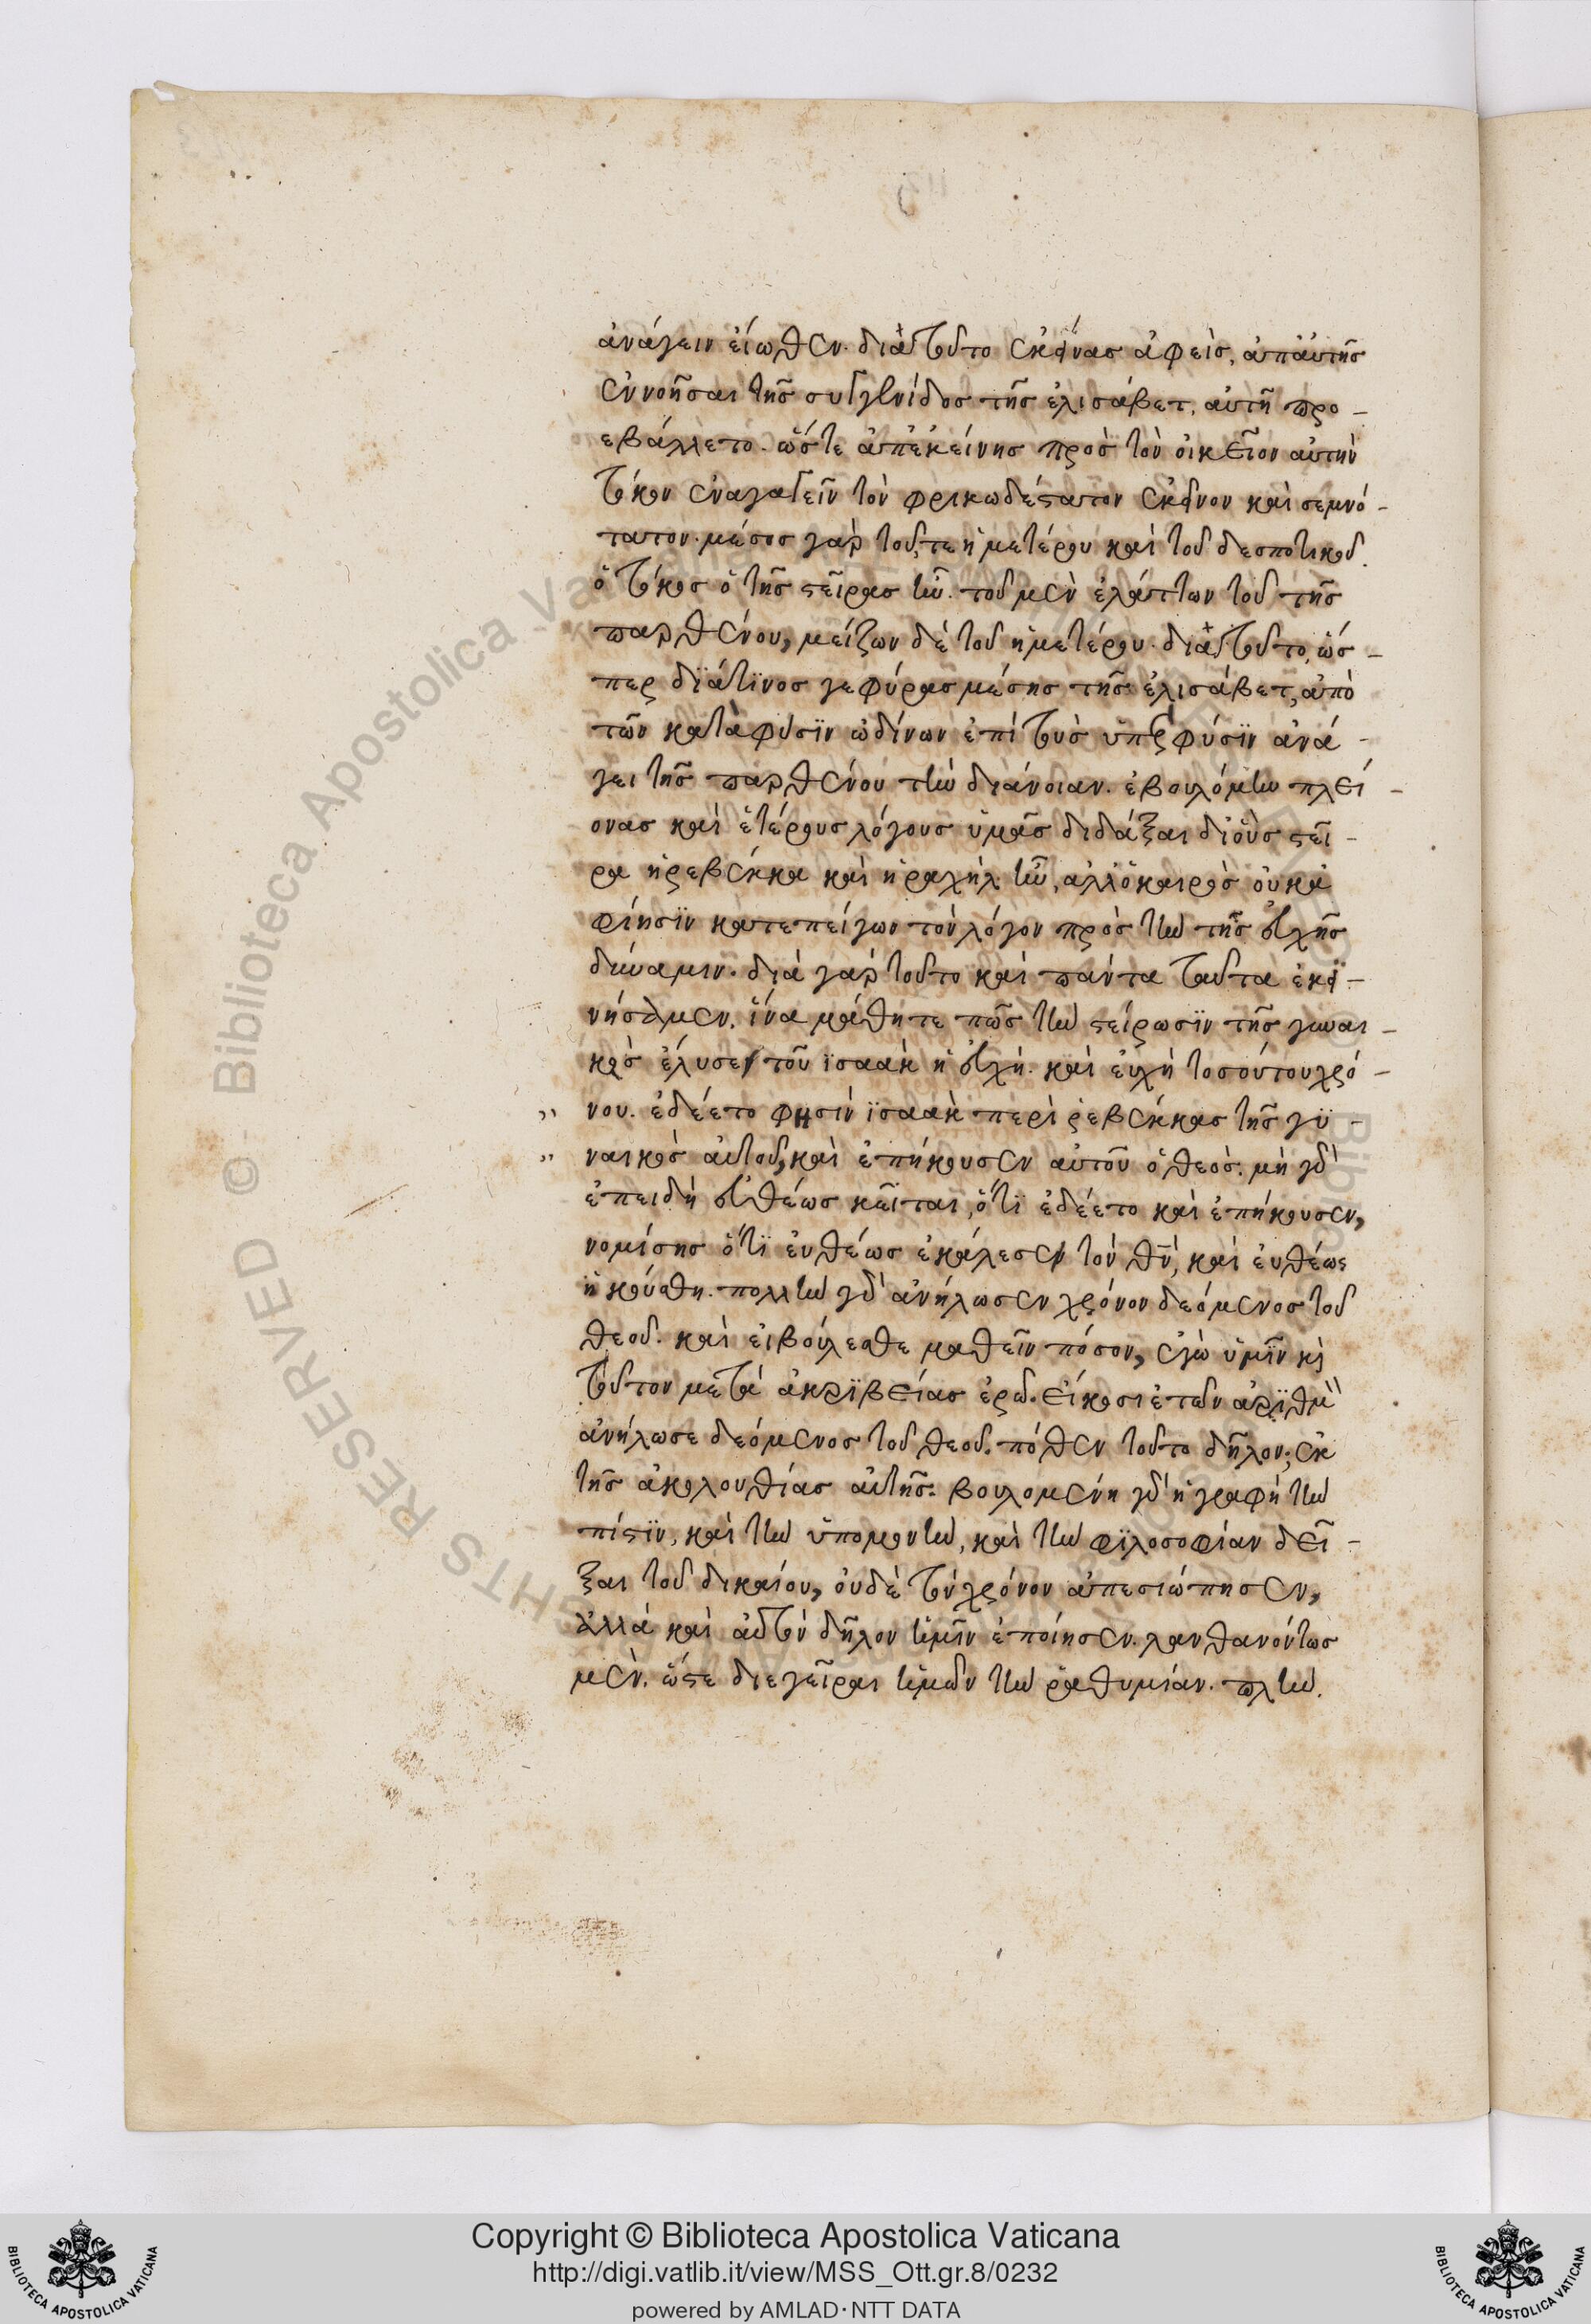 ἀνάγειν εἴωθεν. διὰ τοῦτο ἐκείνας ἀφεὶς, ἀπ' αὐτῆς
ἐννοῆσαι τῆς συγγενίδος τῆς ἐλισάβετ, αὐτῇ προ-
εβάλλετο. ὥστε ἀπ' ἐκείνης πρὸς τὸν οἰκεῖον αὐτὴν
τόκον ἐναγαγεῖν τὸν φρικωδέστατον ἐκεῖνον καὶ σεμνό-
τατον. μέσος γὰρ τοῦ τε ἡμετέρου καὶ τοῦ δεσποτικοῦ.
ὁ τόκος ὁ τῆς στείρας ἦν. τοῦ μὲν ἐλάττων τοῦ τῆς
παρθένου, μείζων δὲ τοῦ ἡμετέρου. διὰ τοῦτο, ὥσ-
περ διά τινος γεφύρας μέσης τῆς ἐλισάβετ, ἀπὸ
τῶν κατὰ φύσϊν ὠδίνων ἐπὶ τοὺς ὑπὲρ φύσϊν ἀνά-
γει τῆς παρθένου τὴν διάνοιαν. ἐβουλόμην πλεί-
ονας καὶ ἑτέρους λόγους ὑμᾶς διδάξαι δι' οὓς στεῖ-
ρα ἡ ῥεβέκκα καὶ ἡ ραχὴλ ἦν, ἀλλ' ὁ καιρὸς οὐκ ἀ
φίησϊν κατεπείγων τὸν λόγον πρὸς τὴν τῆς εὐχῆς
δύναμιν. διὰ γὰρ τοῦτο καὶ πάντα ταῦτα ἐκϊ-
νήσαμεν. ἵνα μάθητε πῶς τὴν στείρωσϊν τῆς γυναι-
κὸς ἔλυσε τοῦ ϊσαὰκ ἡ εὐχή. καὶ εὐχὴ τοσούτου χρό-
νου. ἐδέετο φησὶν ϊσαὰκ περὶ ῥεβέκκας τῆς γϋ-
ναικὸς αὐτοῦ, καὶ ἐπήκουσεν αὐτοῦ ὁ θεός. μὴ γὰρ
ἐπειδὴ εὐθέως κεῖται, ὅτϊ ἐδέετο καὶ ἐπήκουσεν,
νομίσῃς ὅτϊ εὐθέως ἐκάλεσεν τὸν θν̄, καὶ εὐθέως
ἠκούσθη. πολλὴν γὰρ ἀνήλωσεν χρόνον δεόμενος τοῦ
θεοῦ. καὶ εἰ βούλεσθε μαθεῖν πόσον, ἐγὼ ὑμῖν κὶ
τοῦτον μετὰ ἀκρϊβείας ἐρῶ. εἴκοσι ἐτῶν ἀρϊθμὸν
ἀνήλωσε δεόμενος τοῦ θεοῦ. πόθεν τοῦτο δῆλον; ἐκ
τῆς ἀκολουθίας αὐτῆς. βουλομένη γὰρ ἡ γραφὴ τὴν
πίστϊν, καὶ τὴν ὑπομονὴν, καὶ τὴν φϊλοσοφίαν δεῖ-
ξαι τοῦ δικαίου, οὐδὲ τὸν χρόνον ἀπεσιώπησεν,
ἀλλὰ καὶ αὐτὸν δῆλον ἡμῖν ἐποίησεν. λανθανόντως
μὲν. ὥστε διεγεῖραι ἡμῶν τὴν ῥαθυμίαν. πλὴν.
Copyright © Biblioteca Apostolica Vaticana
http://digi.vatlib.it/view/MSS_Ott.gr.8/0232
powered by AMLAD · NTT DATA